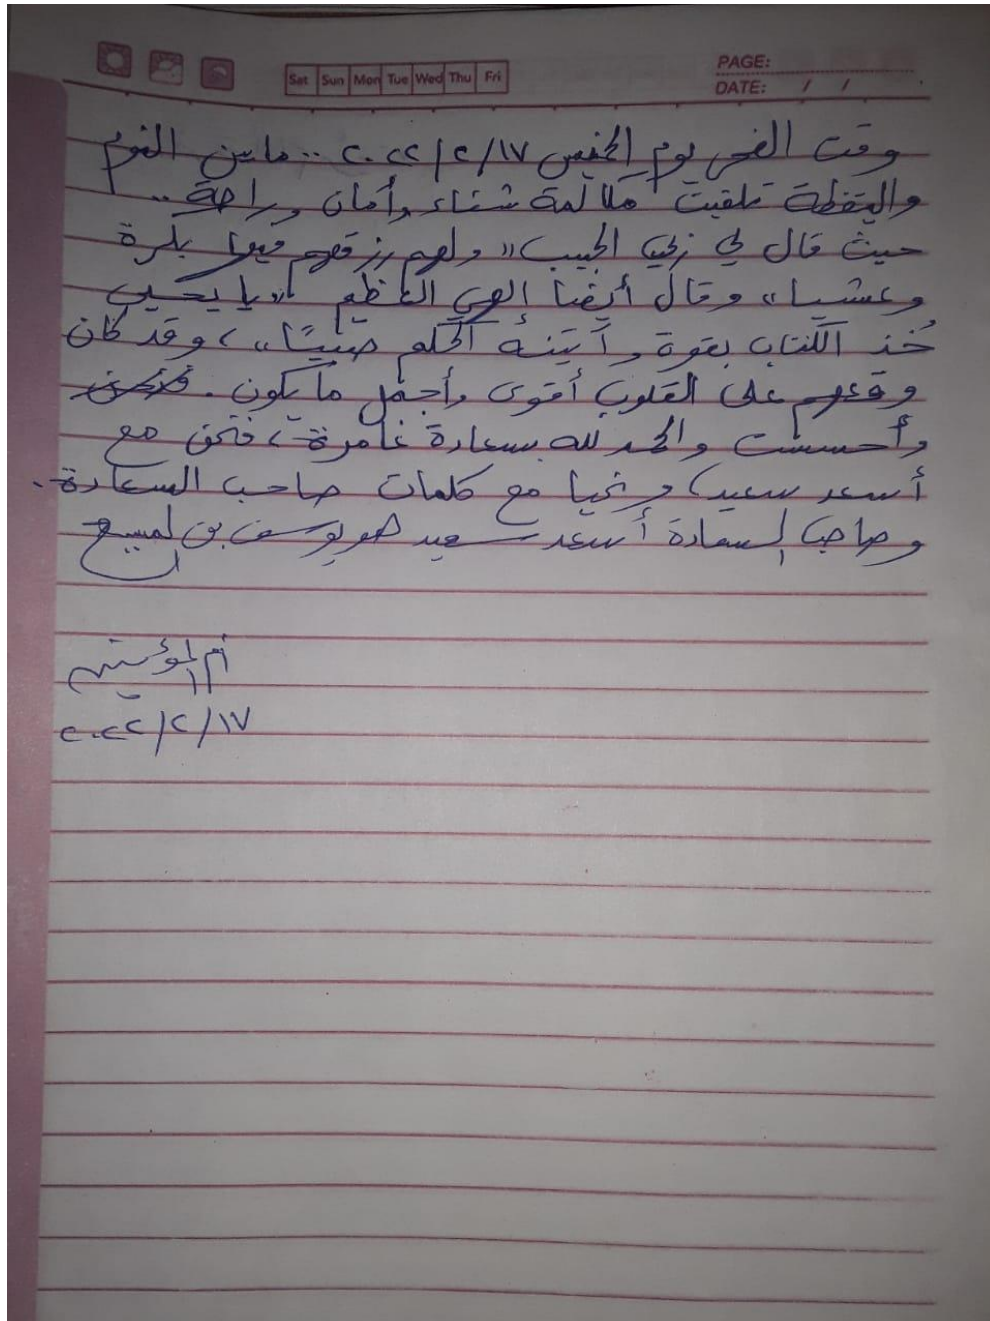 PAGE:
Sat Sun Mon Tue Wed Thu Fri
DATE: / /
وقت الفجر يوم الخميس ٢٠٢٢/٢/١٧ .. ما بين النوم
واليقظة تلقيت مكالمة شفاء وأمان وراحة ..
حيث قال لي ربي الحبيب "ولهم رزقهم فيها بكرة
وعشيا" وقال أيضا إلهي العظيم "يا يحيى
خُذ الكتاب بقوة وآتينه الحكم صبيًا"، وقد كان
وقعهم على القلوب أقوى وأجمل ما يكون. فنحن
وأحسست والحمد لله بسعادة غامرة، فنحن مع
أسعد سعيد، ونحيا مع كلمات صاحب السعادة.
وصاحب السعادة أسعد سعيد هو يوسف بن المسيح
أم المؤمنين
٢٠٢٢/٢/١٧